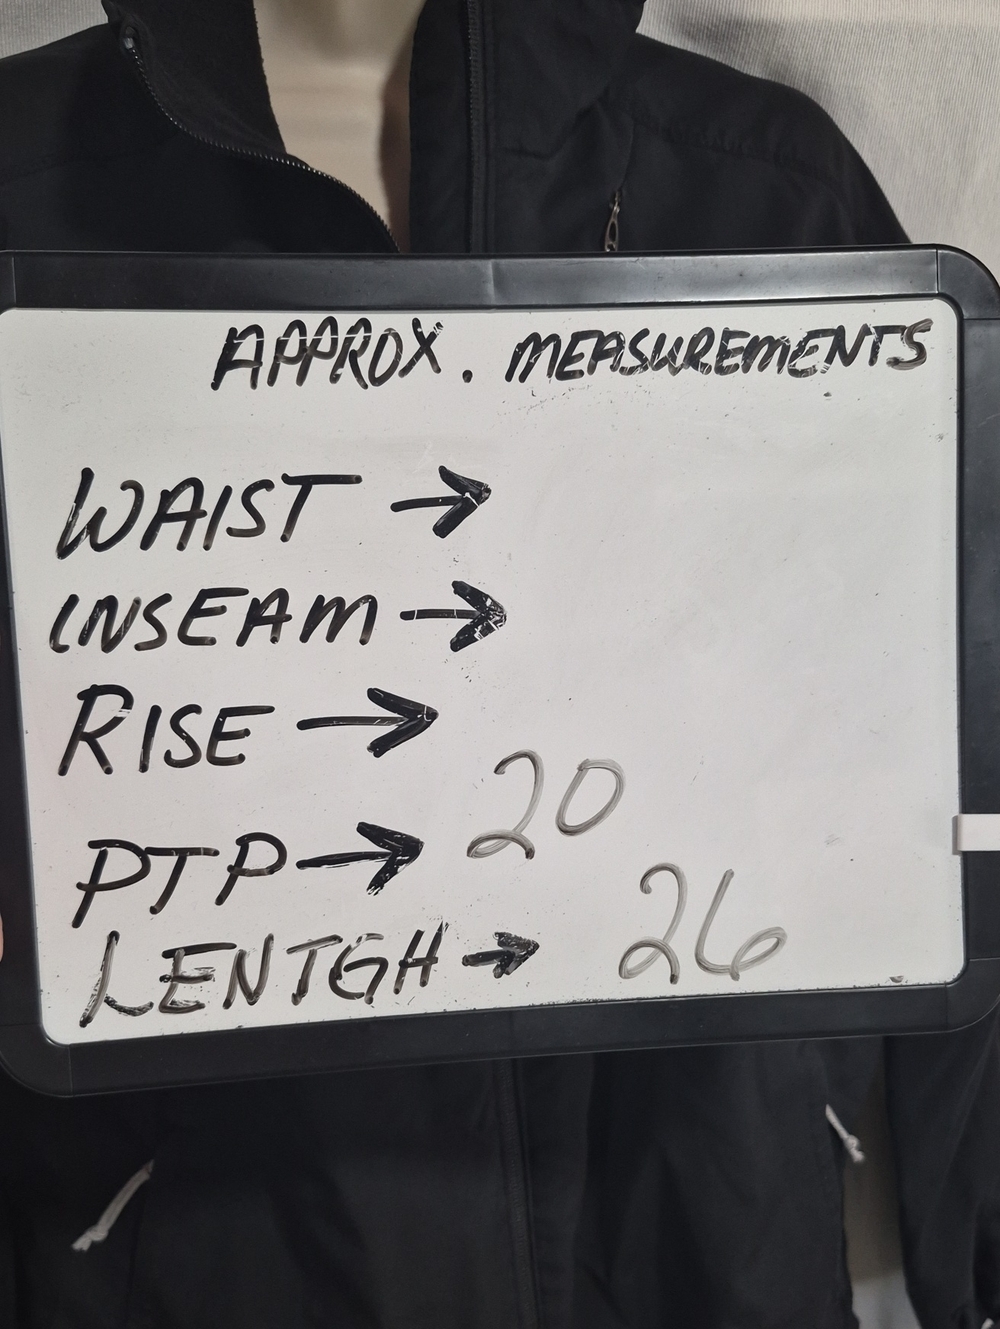 APPROX. MEASUREMENTS
WAIST →
INSEAM →
RISE →
PTP → 20
LENTGH → 26